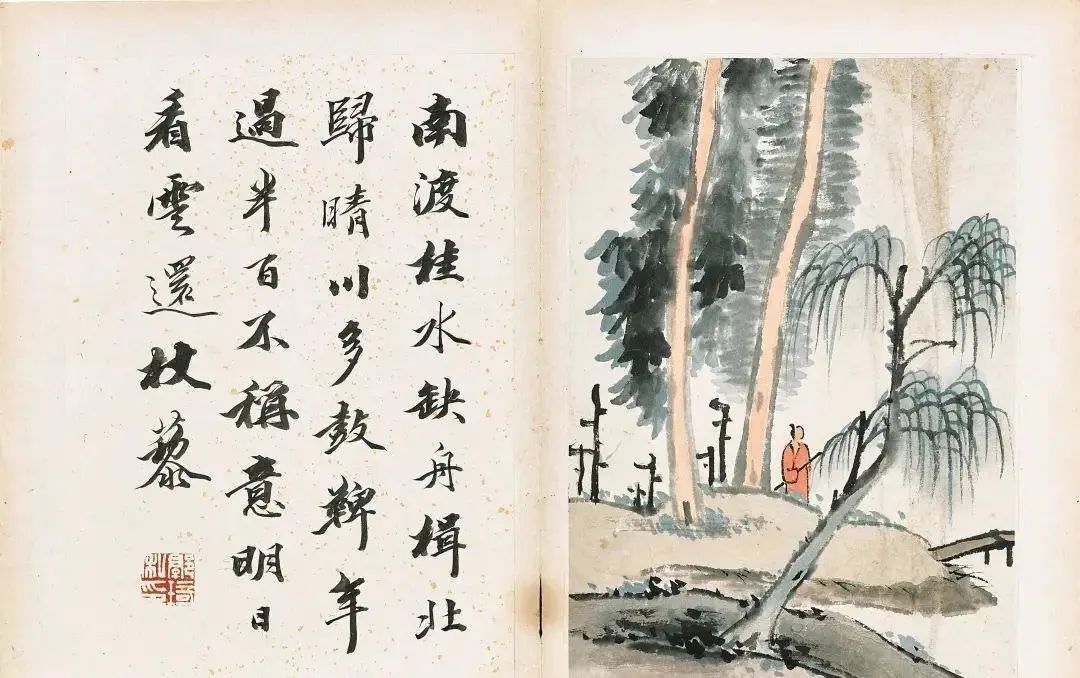 南渡桂水缺舟楫北
歸晴川多鼓鞞年
過半百不稱意明日
看雲還杖藜